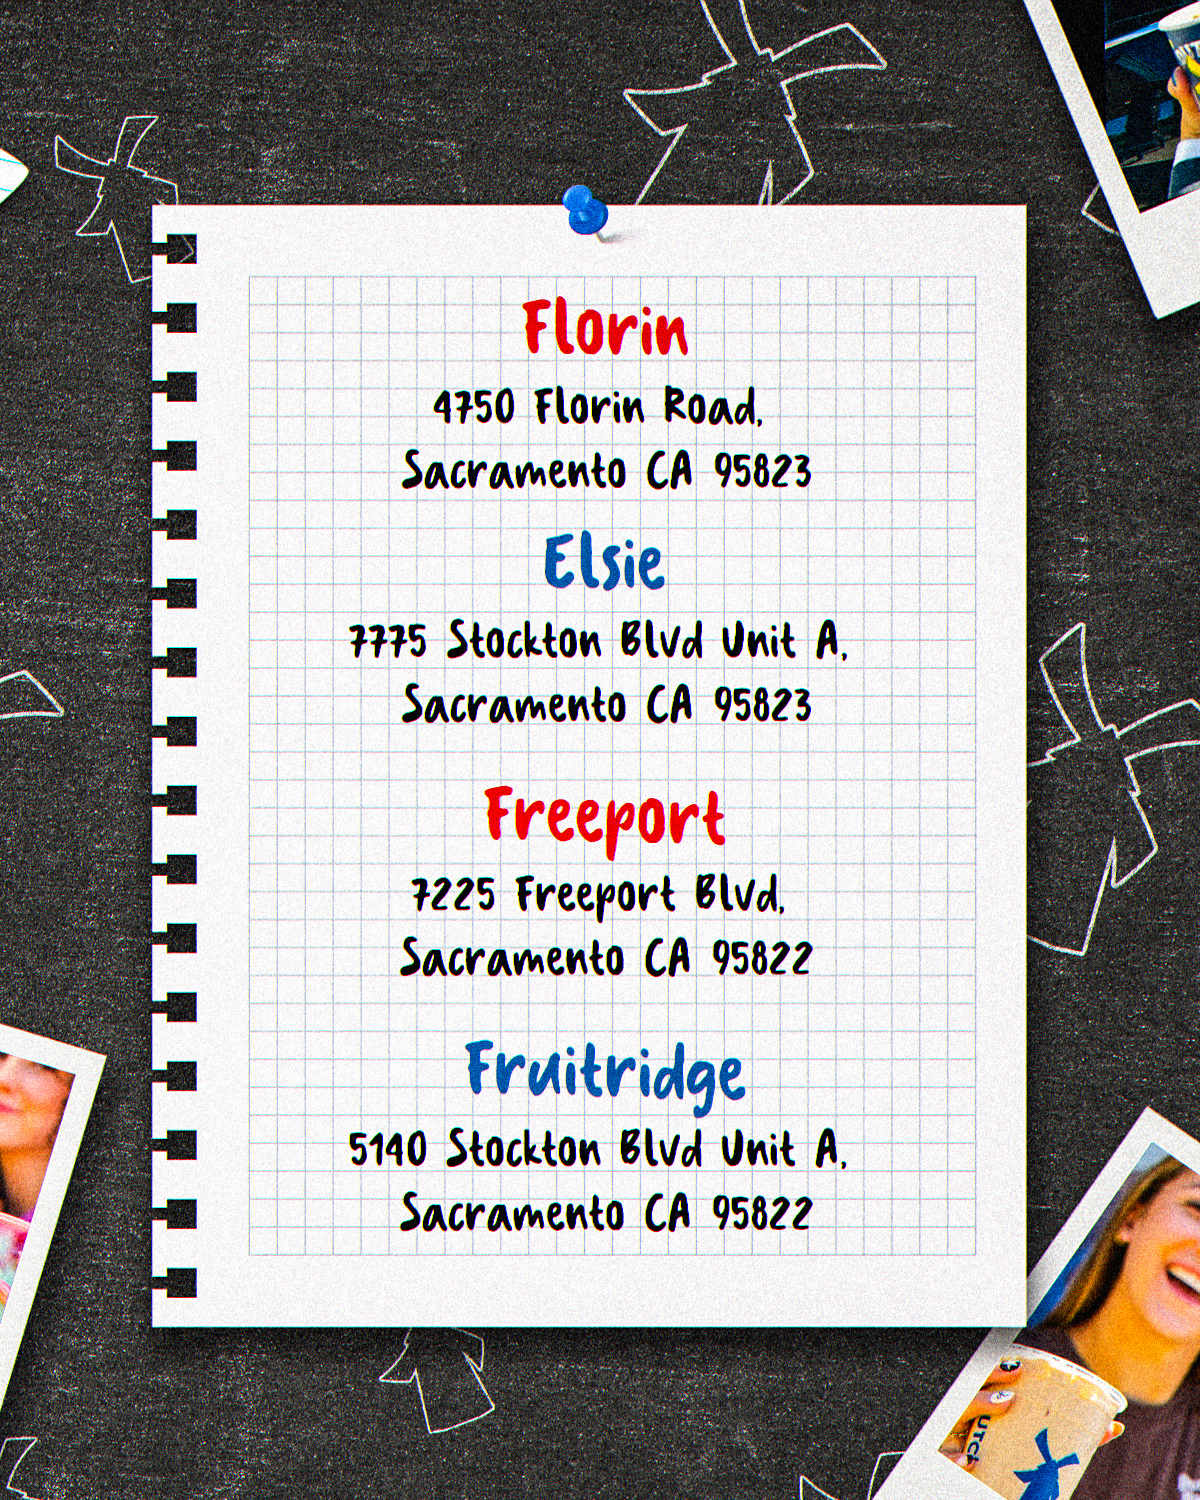 Florin
4750 Florin Road,
Sacramento CA 95823
Elsie
7775 Stockton Blvd Unit A,
Sacramento CA 95823
Freeport
7225 Freeport Blvd,
Sacramento CA 95822
Fruitridge
5140 Stockton Blvd Unit A,
Sacramento CA 95822
UTC